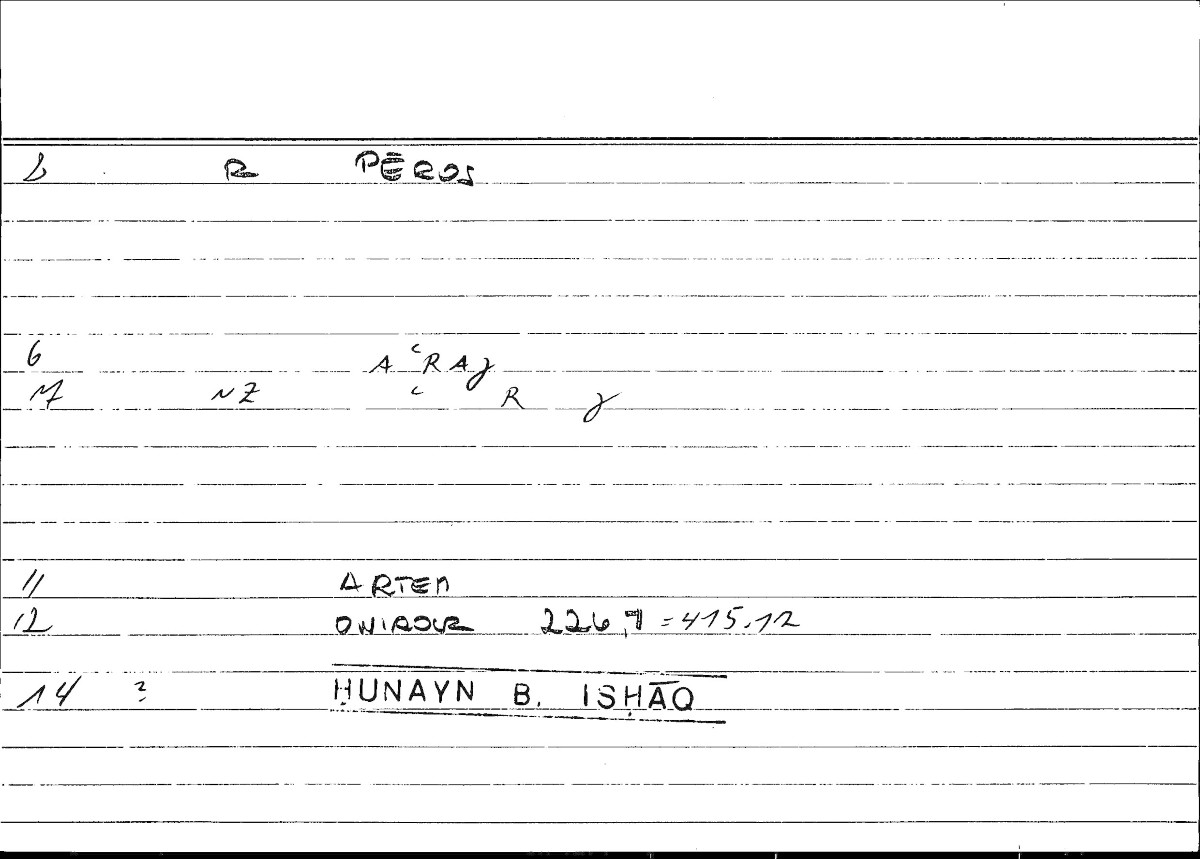 R PĒROS
6 A ʿRAJ
M NZ ʿ R J
11 ARTEM
12 ONIROCR 226,7 = 415.12
14 ? ḤUNAYN B. ISḤĀQ